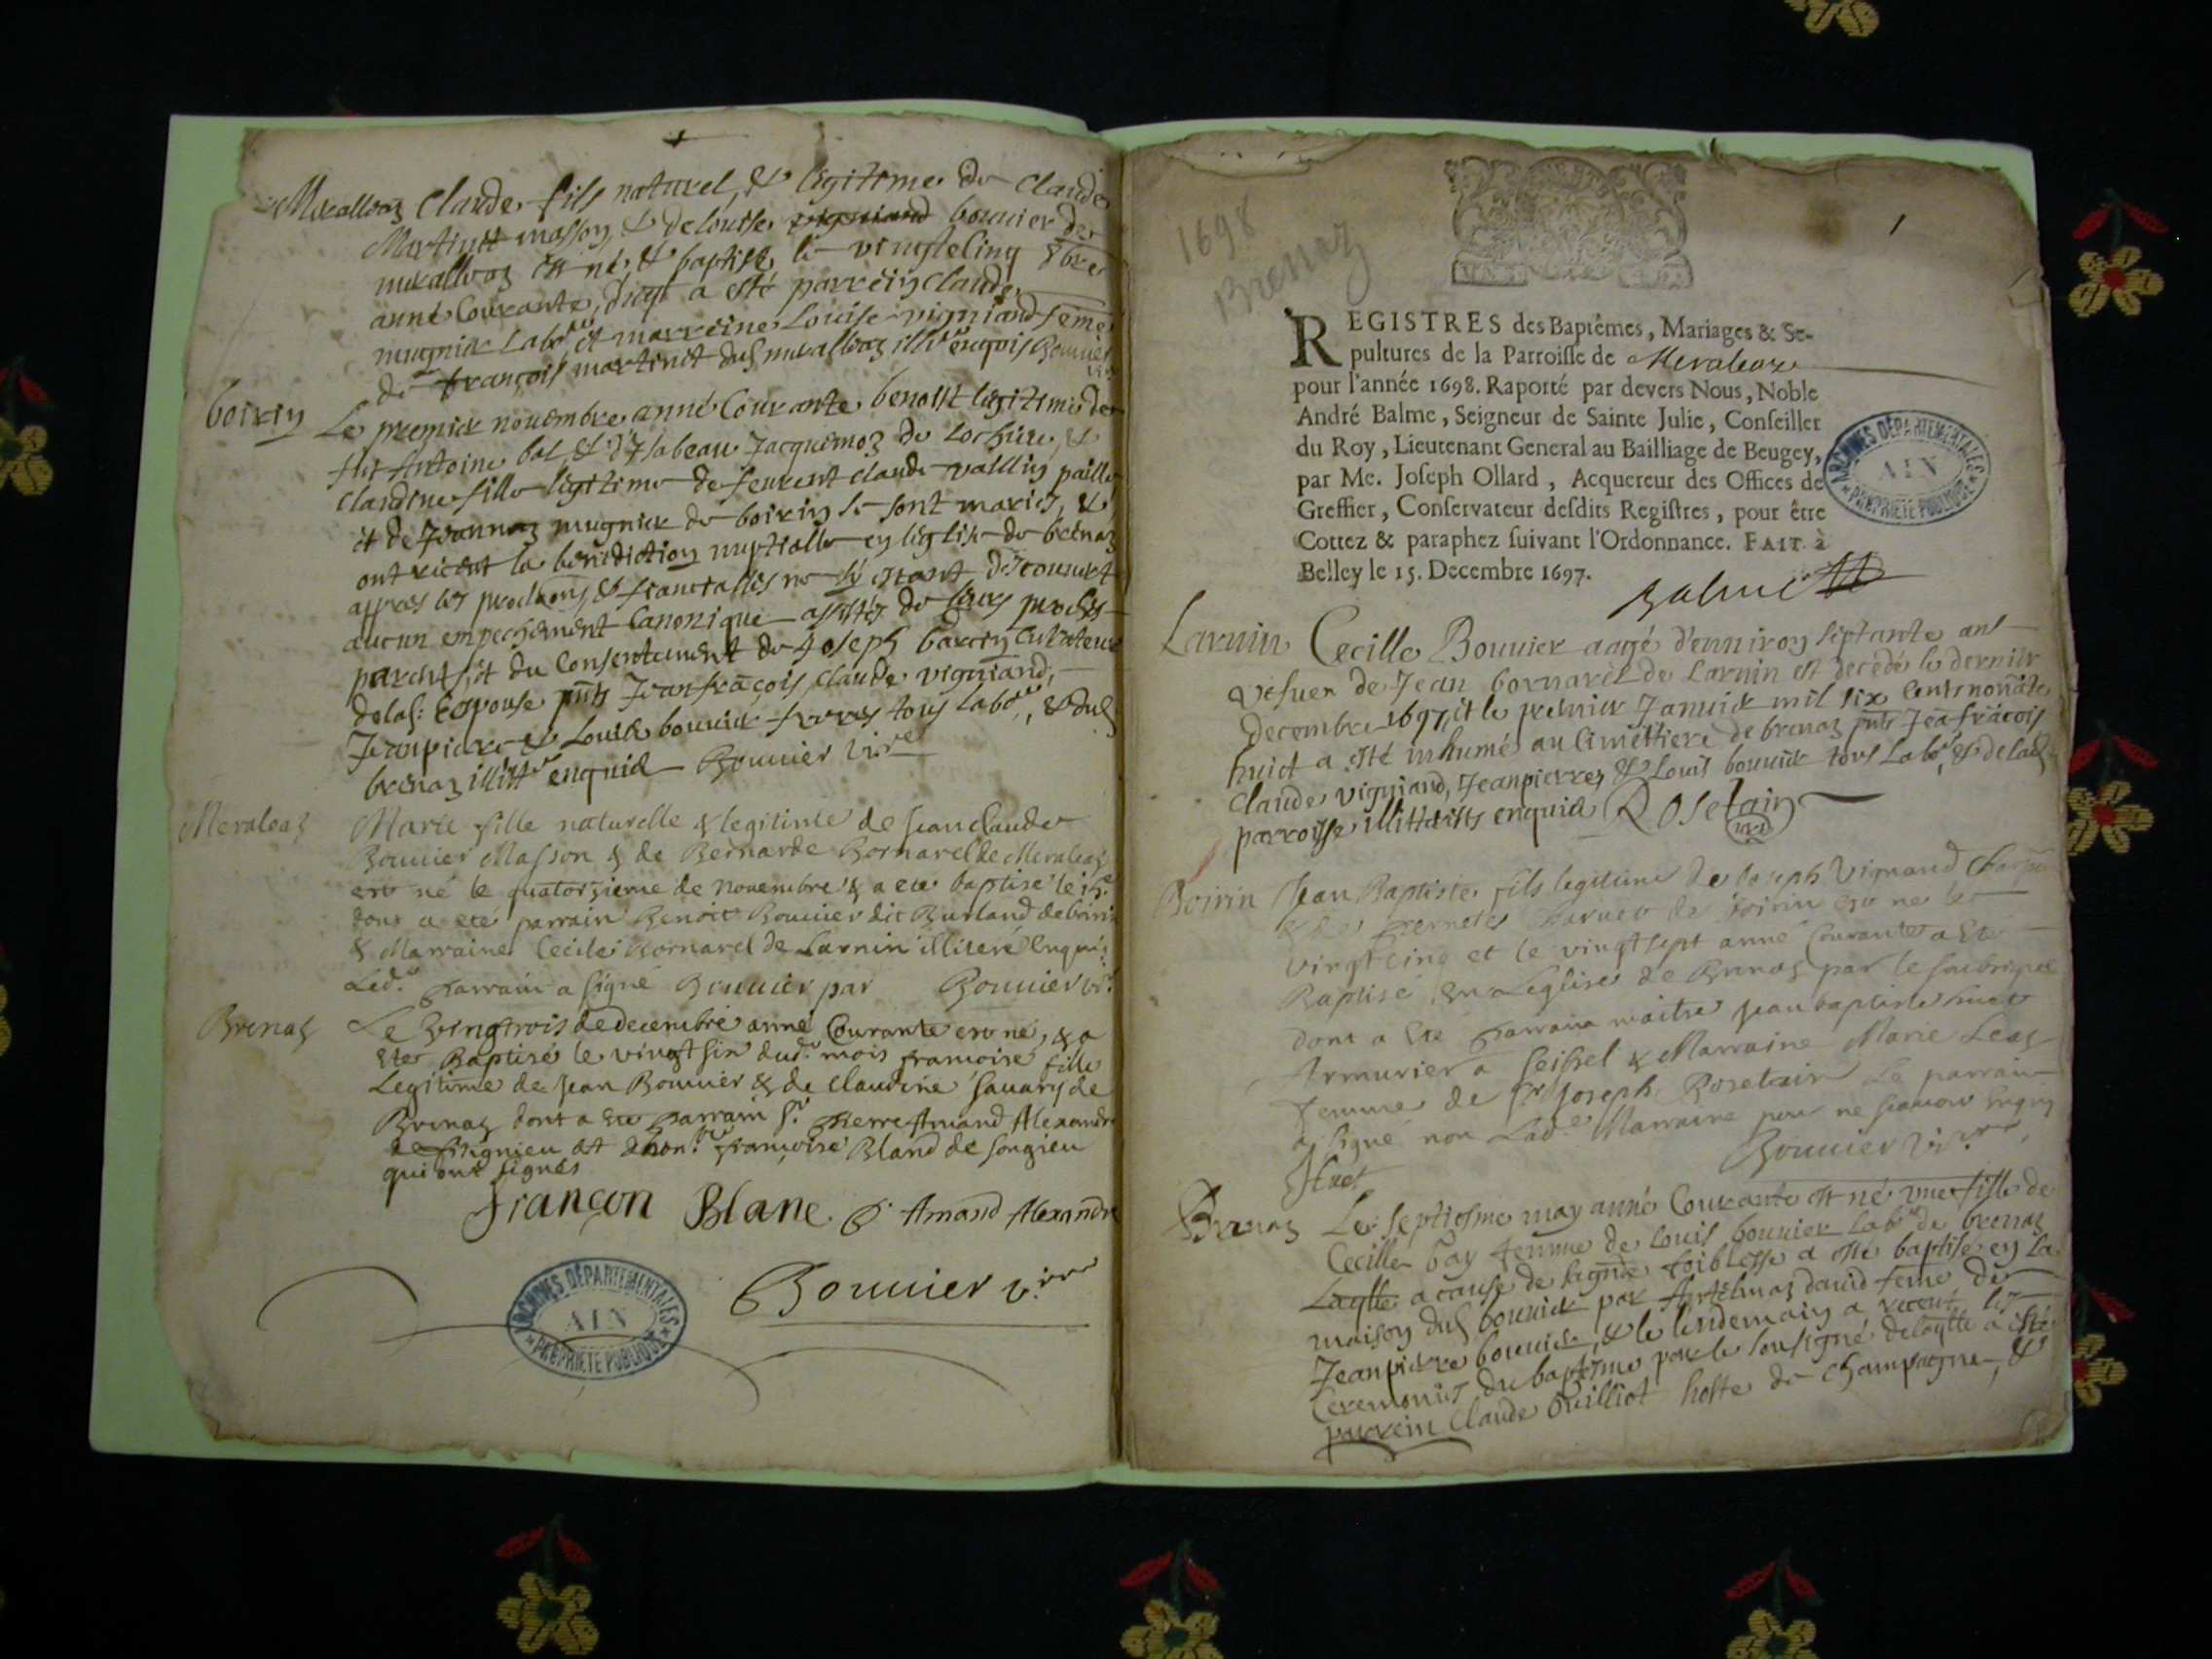 Meralleaz Claude fils naturel, & legitime de Claude
Martinet masson, & de louise bouvier de
meralleaz est né & baptisé le vingtcinq 8bre
anné Courante, duqt a esté parrein Claude
mugnier Labr, et marreine Louise vigniand feme
de françois martinet dud meralleaz illis enquis Bouvier
boirin
Le premier novembre anné Courante benoist legitime de
feu Antoine bal & d'Isabeau Jacquemoz de lochieu, &
Claudine fille legitime de feurent claude vaillin paille
et de Jeannaz mugnier de boirin se sont mariés, &
ont receut la benediction nuptialle en leglise de brenaz
appres les proclaons, & fiancialles ne sy estant découvert
aucun empechement Canonique assistés de leurs proches
parents, et du Consentement de Joseph barcin Curateur
de las: Espouse pnts Jean françois, claude vigniand,
Jeanpierre & Louis bouvier freres tous labrs, & dud
brenaz illittrs enquis Bouvier Vire
Meraleaz
Marie fille naturelle & legitime de Jean claude
Bouvier Masson & de Bernarde Bornarel de Meraleaz
est né le quatorzieme de novembre & a ete baptisé le 15e
dont a eté parrain Benoit Bouvier dit Burland de boirin
& Marraine Cecile Bornarel de Larnin illiteré Enquis
Led. Parrain a signé Bouvier par Bouvier vi.
Brenaz
Le Vingtrois de decembre anné Courante est né, & a
Ete Baptisé le vingt six dud. mois francoise fille
Legitime de Jean Bouvier & de Claudine Savary de
Brenaz dont a ete parrain Sr. Pierre Amand Alexandre
de Sirignieu et dhon. francoise Bland de Songieu
qui ont signés
françon Blanc P. Amand Alexandre
Bouvier v.re
ARCHIVES DÉPARTEMENTALES
AIN
PROPRIÉTÉ PUBLIQUE
1698
Brenaz
1
REGISTRES des Baptêmes, Mariages & Se-
pultures de la Parroisse de Meraleaz
pour l'année 1698. Raporté par devers Nous, Noble
André Balme, Seigneur de Sainte Julie, Conseiller
du Roy, Lieutenant General au Bailliage de Beugey,
par Me. Joseph Ollard, Acquereur des Offices de
Greffier, Conservateur desdits Registres, pour être
Cottez & paraphez suivant l'Ordonnance. FAIT à
Belley le 15. Decembre 1697.
Balme
ARCHIVES DÉPARTEMENTALES
AIN
PROPRIÉTÉ PUBLIQUE
Larnin
Cecille Bouvier aagé d'environ septante ans
vefue de Jean bornarel de Larnin est decedé le dernier
decembre 1697, et le premier Janvier mil six Cents nonāte
huict a esté inhumé au Cimettiere de brenaz pnts Jeā frācois
Claude vigniand, Jeanpierre, & Louis bouvier tous Labrs, & de lad
parroisse illittérés enquis Rosetain
Boirin
Jean Baptiste fils legitime de Joseph Vignand
& de pernete de Boirin est né le
vingtcinq et le vingtsept anné Courante a Ete
Baptisé En Leglise de Brenaz par le soubsigné
dont a Ete Parrain maitre Jean baptiste huet
Armurier a Seissel & Marraine Marie Leaz
femme de Sr Joseph Rosetain Le parrain
a signé non Lade Marraine pour ne scavoir Enquis
Huet Bouvier Vi.re
Brenaz
Le septiesme may anné Courante est né une fille de
Cecille bay femme de Louis bouvier labr de brenaz
Laqlle a cause de foiblesse a esté baptisé en la
maison dud bouvier par Antelmaz david feme de
Jeanpierre bouvier, & le lendemain a receut les
Ceremonies du baptesme par le sousigné de laqlle a esté
parrein Claude Guilliot hoste de Champagne, &